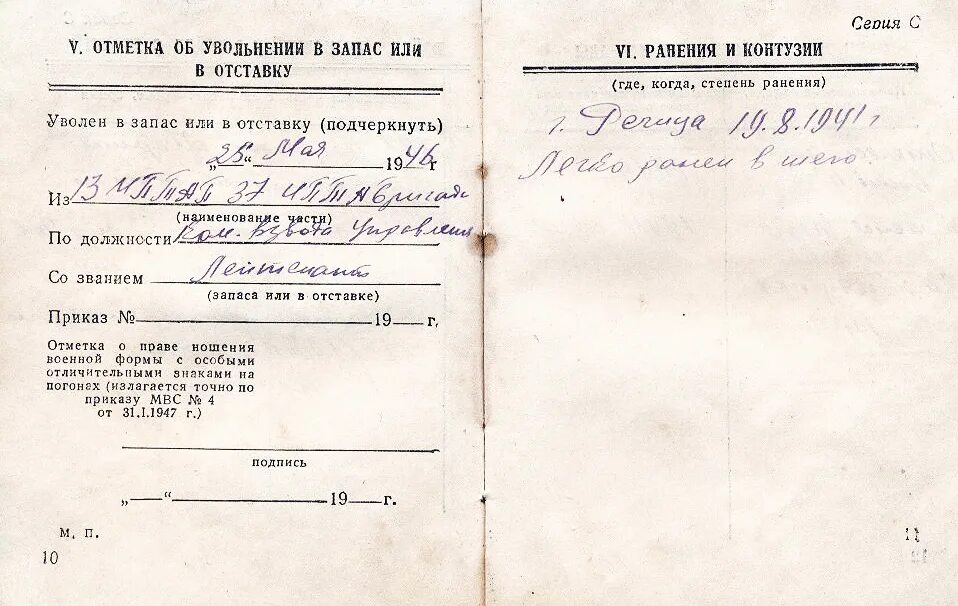 V. ОТМЕТКА ОБ УВОЛЬНЕНИИ В ЗАПАС ИЛИ
В ОТСТАВКУ
Уволен в запас или в отставку (подчеркнуть)
„25“ Мая 1946 г
Из 13 ИПТАП 37 ИПТАбригады
(наименование части)
По должности Ком. взвода Управления
Со званием Лейтенант
(запаса или в отставке)
Приказ № 19 г.
Отметка о праве ношения
военной формы с особыми
отличительными знаками на
погонах (излагается точно по
приказу МВС № 4
от 31.I.1947 г.)
подпись
„ “ 19 г.
М. П.
10
Серия С
VI. РАНЕНИЯ И КОНТУЗИИ
(где, когда, степень ранения)
г. Речица 19.8.1941 г
Легко ранен в шею
11